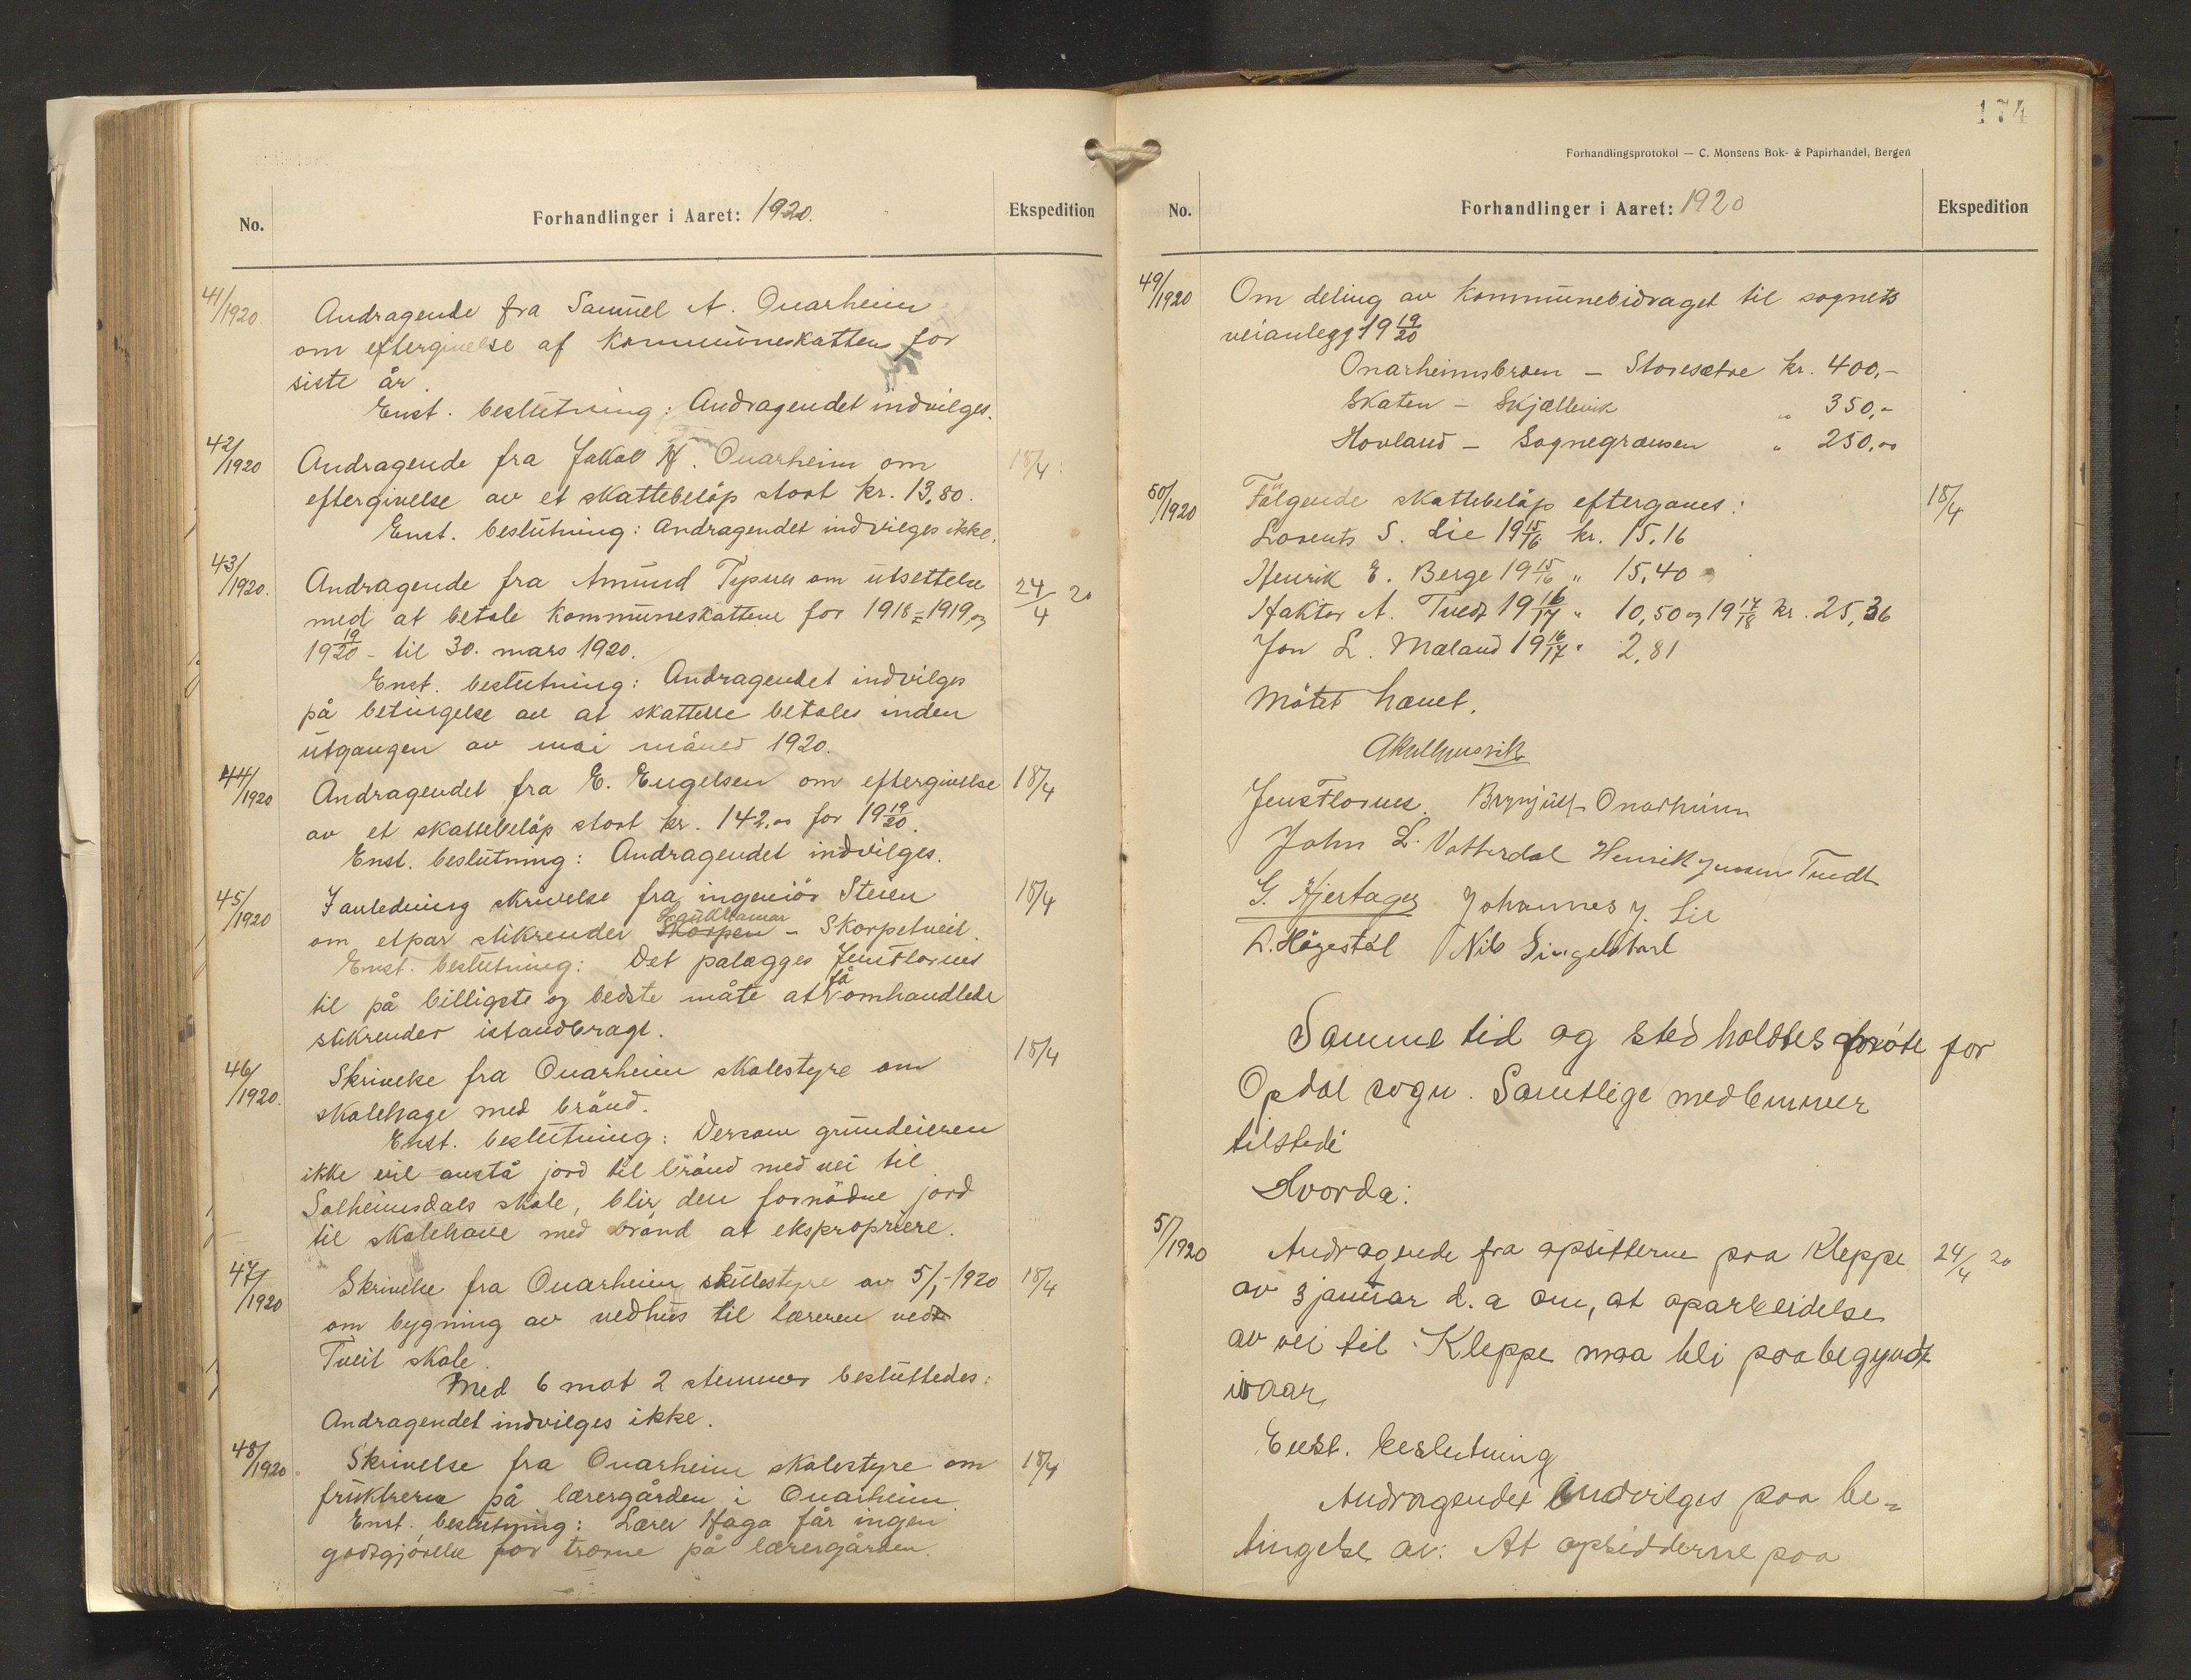 No.
Forhandlinger i Aaret: 1920.
Ekspedition
41/1920
Andragende fra Samuel A. Onarheim
om eftergivelse af kommuneskatten for
siste år.
Enst. beslutning: Andragendet indvilges.
42/1920
Andragende fra Jakob H. Onarheim om
18/4
eftergivelse av et skattebeløp stort kr. 13,80.
Enst. beslutning: Andragendet indvilges ikke.
43/1920.
Andragende fra Amund Tysnes om utsettelse
24/4 20
med at betale kommuneskattene for 1918=1919 og
19 19/20 - til 30. mars 1920.
Enst. beslutning: Andragendet indvilges
på betingelse av at skattene betales inden
utgangen av mai måned 1920.
44/1920
Andragendet fra E. Engelsen om eftergivelse
18/4
av et skattebeløp stort kr. 142,00 for 19 19/20.
Enst. beslutning: Andragendet indvilges.
45/1920
I anledning skrivelse fra ingeniør Steien
18/4
om etpar stikrender Skorpen - Skorpetveit.
Enst. beslutning: Det palægges Jens Flornes
til på billigste og bedste måte at få omhandlede
stikrender istandbragt.
46/1920.
Skrivelse fra Onarheim skolestyre om
18/4
skolehage med brønd.
Enst. beslutning: Dersom grundeieren
ikke vil avstå jord til brønd med vei til
Solheimsdals skole, blir den fornødne jord
til skolehave med brønd at ekspropriere.
47/1920
Skrivelse fra Onarheim skolestyre av 5/1-1920
18/4
om bygning av vedhus til læreren ved
Tveit skole.
Med 6 mot 2 stemmer besluttedes:
Andragendet indvilges ikke.
48/1920.
Skrivelse fra Onarheim skolestyre om
18/4
frukttrerne på lærergården i Onarheim.
Enst. beslutning: Lærer Haga får ingen
godtgjørelse for trærne på lærergården.
174
Forhandlingsprotokol — C. Monsens Bok- & Papirhandel, Bergen
No.
Forhandlinger i Aaret: 1920
Ekspedition
49/1920
Om deling av kommunebidraget til sognets
veianlegg 19 19/20
Onarheimsbroen - Storesætre kr. 400,-
Skaten - Skjællevik " 350,-
Hovland - Sognegrænsen " 250,00
50/1920
Følgende skattebeløp eftergaves:
18/4
Lorents S. Lie 19 15/16 kr. 15,16
Henrik E. Berge 19 15/16 " 15,40
Haktor A. Tvedt 19 16/17 " 10,50 og 19 17/18 kr. 25,36
Jon L. Mæland 19 16/17 " 2,81
Møtet hævet.
Jens Flornes. Brynjulf Onarheim
John L. Vatterdal Henrik Jensen Tvedt
G. Hjertager Johannes J. Lie
L. Høgestøl Nils Singelstad
Samme tid og sted holdtes møte for
Opdal sogn. Samtlige medlemmer
tilstede
Hvorda:
51/1920
Andragende fra opsitterne paa Kleppe
24/4 20
av 3 januar d. a om, at oparbeidelse
av vei til Kleppe maa bli paabegyndt
ivaar,
Enst. beslutning
Andragendet indvilges paa be=
tingelse av: At opsidderne paa